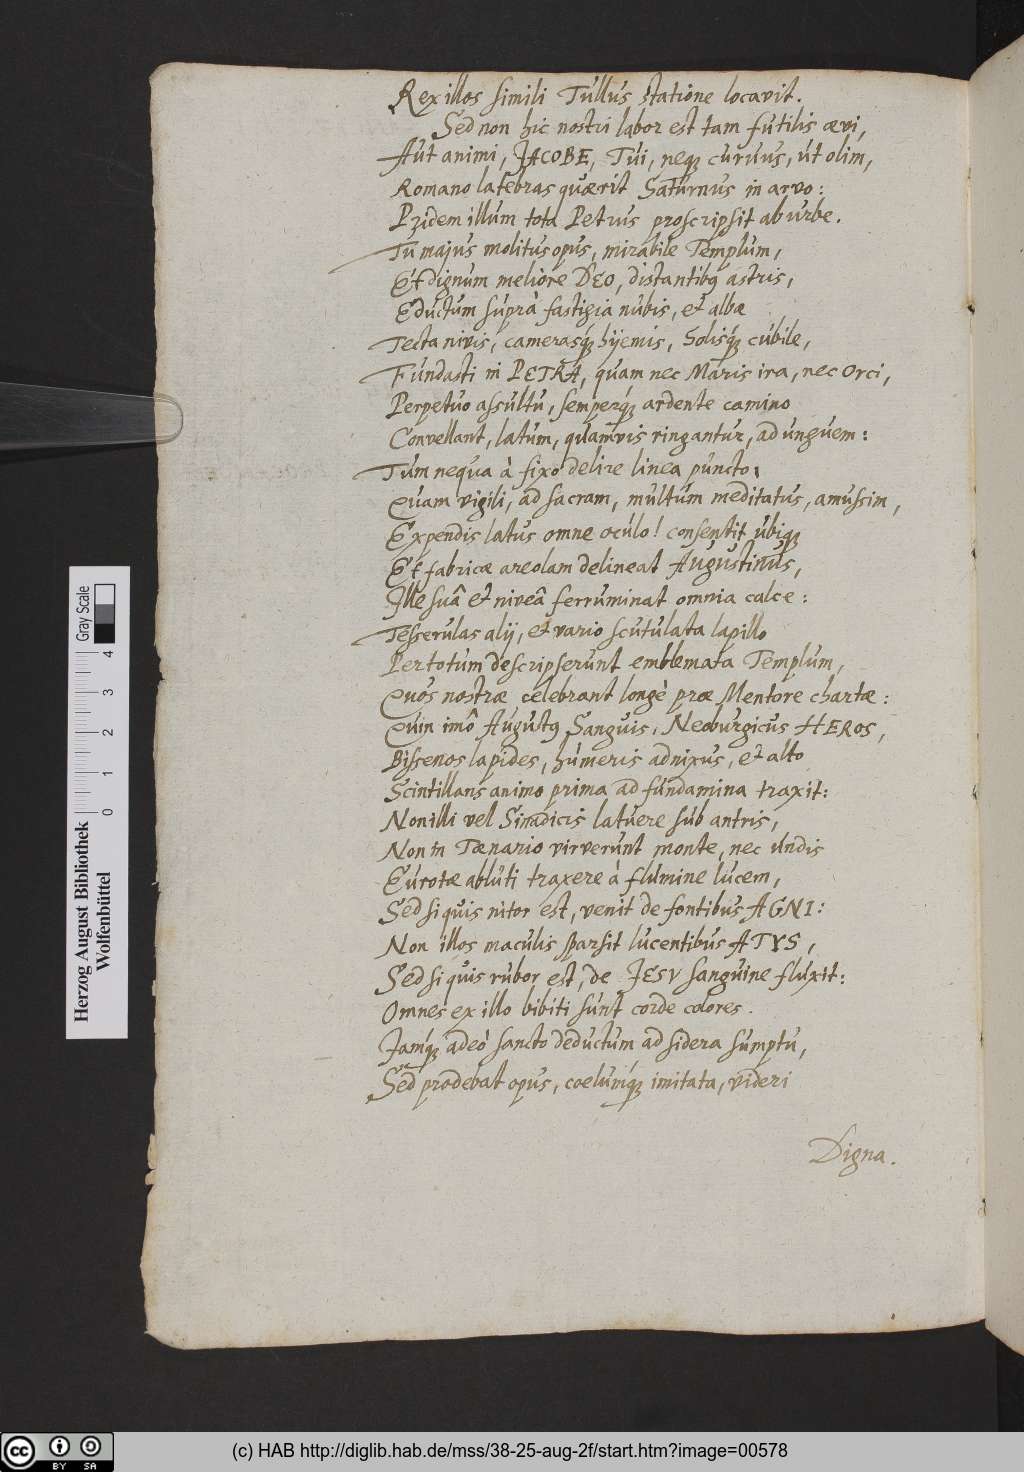 Rex illos simili Tullus statione locavit.
Sed non hic nostri labor est tam futilis ævi,
Aut animi, JACOBE, Tui, neqꝫ curuus, ut olim,
Romano latebras quærit Saturnus in arvo:
Pridem illum tota Petrus proscripsit ab urbe.
Tu majus molitus opus, mirabile Templum,
Et dignum meliore DEO, distantibꝰ astris,
Eductum suprà fastigia nubis, et albæ
Tecta nivis, camerasqꝫ hyemis, Solisqꝫ cubile,
Fundasti in PETRA, quam nec Maris ira, nec Orci,
Perpetuo assultu, semperqꝫ ardente camino
Convellant, latum, quamvis ringantur, ad unguem:
Tum nequa à fixo delire linea puncto,
Quam vigili, ad sacram, multum meditatus, amussim,
Expendis latus omne oculo! consentit ubiqꝫ
Et fabricæ areolam delineat Augustinus,
Ille suâ et niveâ ferruminat omnia calce:
Tesserulas alij, et vario scutulata lapillo
Per totum descripserunt emblemata Templum,
Quos nostræ celebrant longè præ Mentore chartæ:
Quin imò Augustꝰ Sanguis, Neoburgicus HEROS,
Bissenos lapides, humeris adnixus, et alto
Scintillans animo prima ad fundamina traxit:
Non illi vel Sinadicis latuere sub antris,
Non in Tænario virverunt monte, nec undis
Eurotæ abluti traxere à flumine lucem,
Sed si quis nitor est, venit de fontibus AGNI:
Non illos maculis sparsit lucentibus ATYS,
Sed si quis rubor est, de JESV sanguine fluxit:
Omnes ex illo bibiti sunt corde colores.
Jamqꝫ adeò sancto deductum ad sidera sumptu,
Sed prodebat opus, coelumqꝫ imitata, videri
Digna.
Herzog August Bibliothek
Wolfenbüttel
Gray Scale
0 1 2 3 4
cc BY SA
(c) HAB http://diglib.hab.de/mss/38-25-aug-2f/start.htm?image=00578